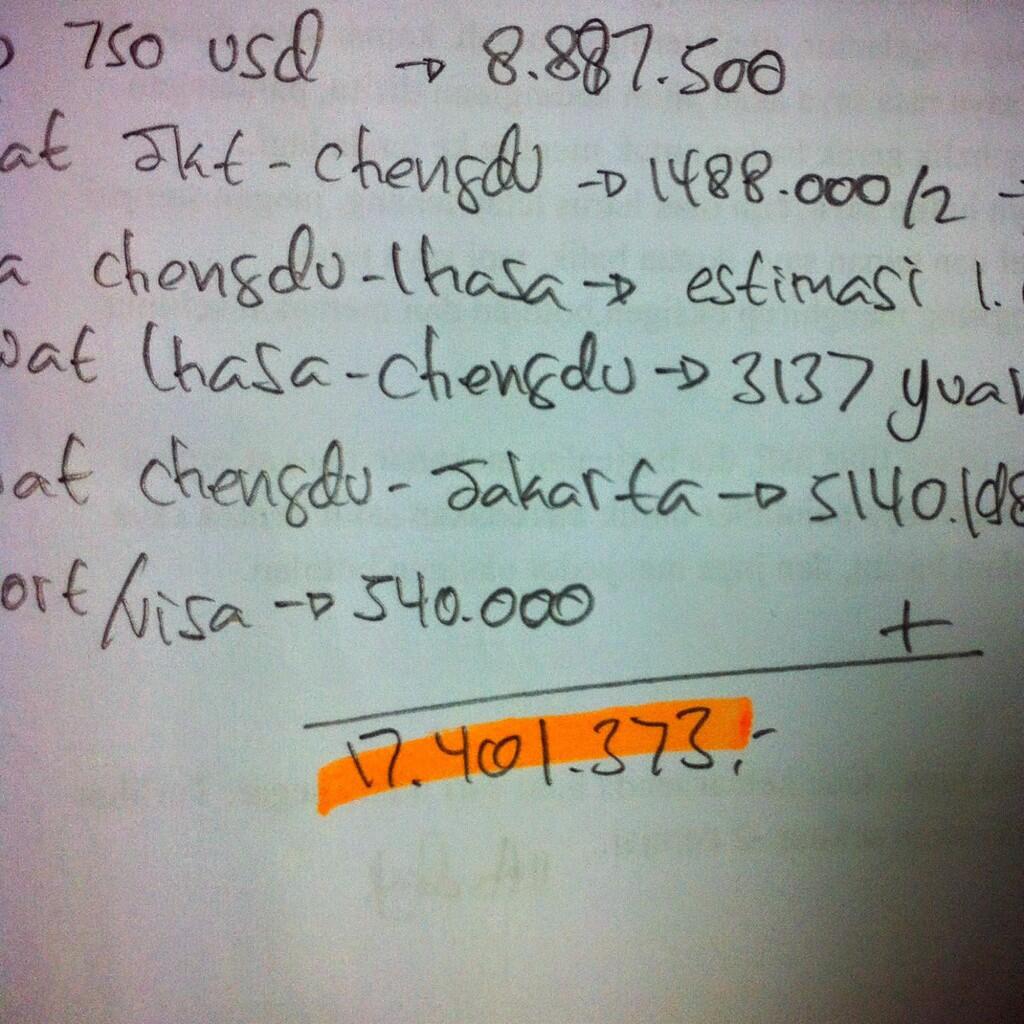 750 usd → 8.887.500
at Jkt - Chengdu → 1488.000/2 →
a chengdu - lhasa → estimasi 1.
wat lhasa - Chengdu → 3137 yuan
at chengdu - Jakarta → 5140.108
ort/visa → 540.000
+
17.401.373,-